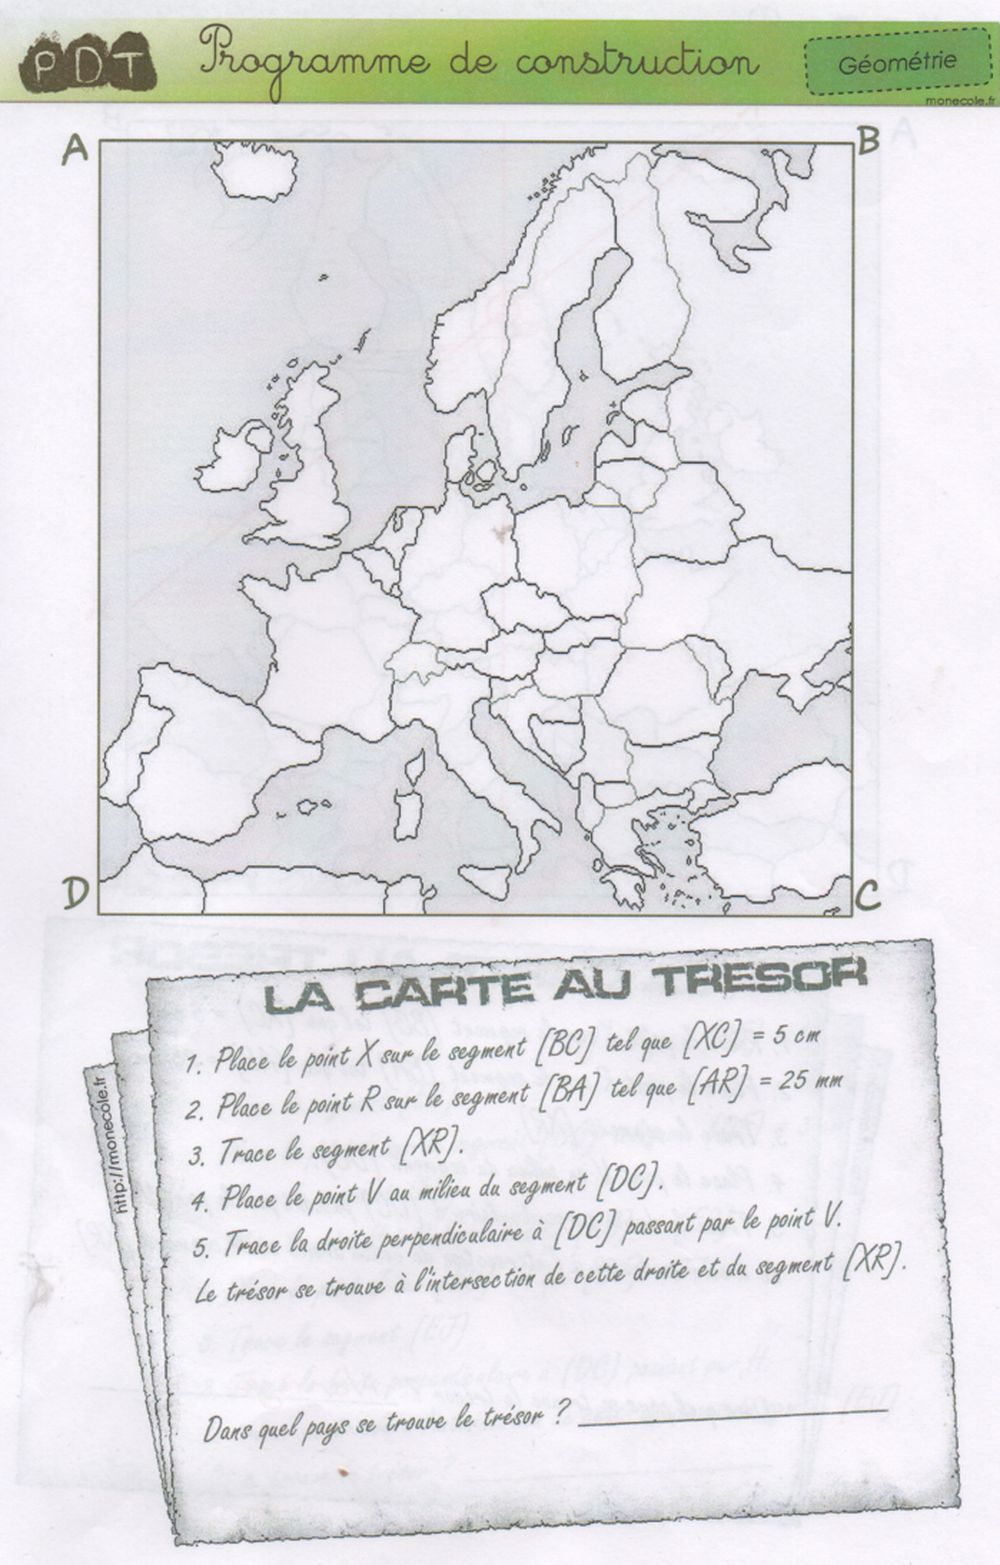 PDT Programme de construction Géométrie
monecole.fr
A B
D C
LA CARTE AU TRESOR
1. Place le point X sur le segment [BC] tel que [XC] = 5 cm
2. Place le point R sur le segment [BA] tel que [AR] = 25 mm
3. Trace le segment [XR].
4. Place le point V au milieu du segment [DC].
5. Trace la droite perpendiculaire à [DC] passant par le point V.
Le trésor se trouve à l'intersection de cette droite et du segment [XR].
Dans quel pays se trouve le trésor ?
http://monecole.fr